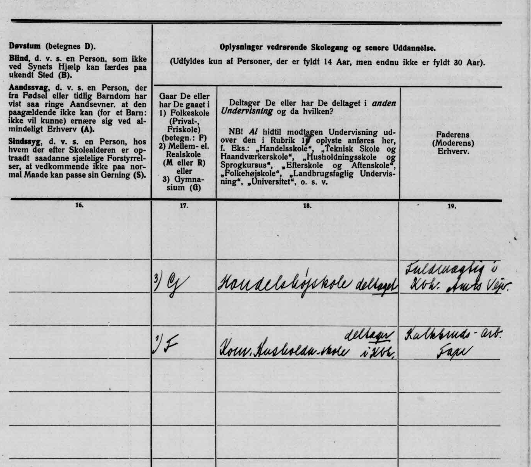 Døvstum (betegnes D).
Blind, d. v. s. en Person, som ikke
ved Synets Hjælp kan færdes paa
ukendt Sted (B).
Aandssvag, d. v. s. en Person, der
fra Fødsel eller tidlig Barndom har
vist saa ringe Aandsevner, at den
paagældende ikke kan (for et Barn:
ikke vil kunne) ernære sig ved al-
mindeligt Erhverv (A).
Sindssyg, d. v. s. en Person, hos
hvem der efter Skolealderen er op-
traadt saadanne sjælelige Forstyrrel-
ser, at vedkommende ikke paa nor-
mal Maade kan passe sin Gerning (S).
16.
Oplysninger vedrørende Skolegang og senere Uddannelse.
(Udfyldes kun af Personer, der er fyldt 14 Aar, men endnu ikke er fyldt 30 Aar).
Gaar De eller
har De gaaet i
1) Folkeskole
(Privat-,
Friskole)
(betegn.: F)
2) Mellem- el.
Realskole
(M eller R)
eller
3) Gymna-
sium (G)
17.
Deltager De eller har De deltaget i anden
Undervisning og da hvilken?
NB! Al hidtil modtagen Undervisning ud-
over den i Rubrik 17 oplyste anføres her,
f. Eks.: „Handelsskole“, „Teknisk Skole og
Haandværkerskole“, „Husholdningsskole og
Sprogkursus“, „Efterskole og Aftenskole“,
„Folkehøjskole“, „Landbrugsfaglig Undervis-
ning“, „Universitet“, o. s. v.
18.
Faderens
(Moderens)
Erhverv.
19.
3) G
Handelshøjskole deltaget
Fuldmægtig i
Kbh. Amts Vejv.
1) F
deltager
Kom. Husholdn.-skole i Kbh.
Kalkbruds-Arb.
Faxe